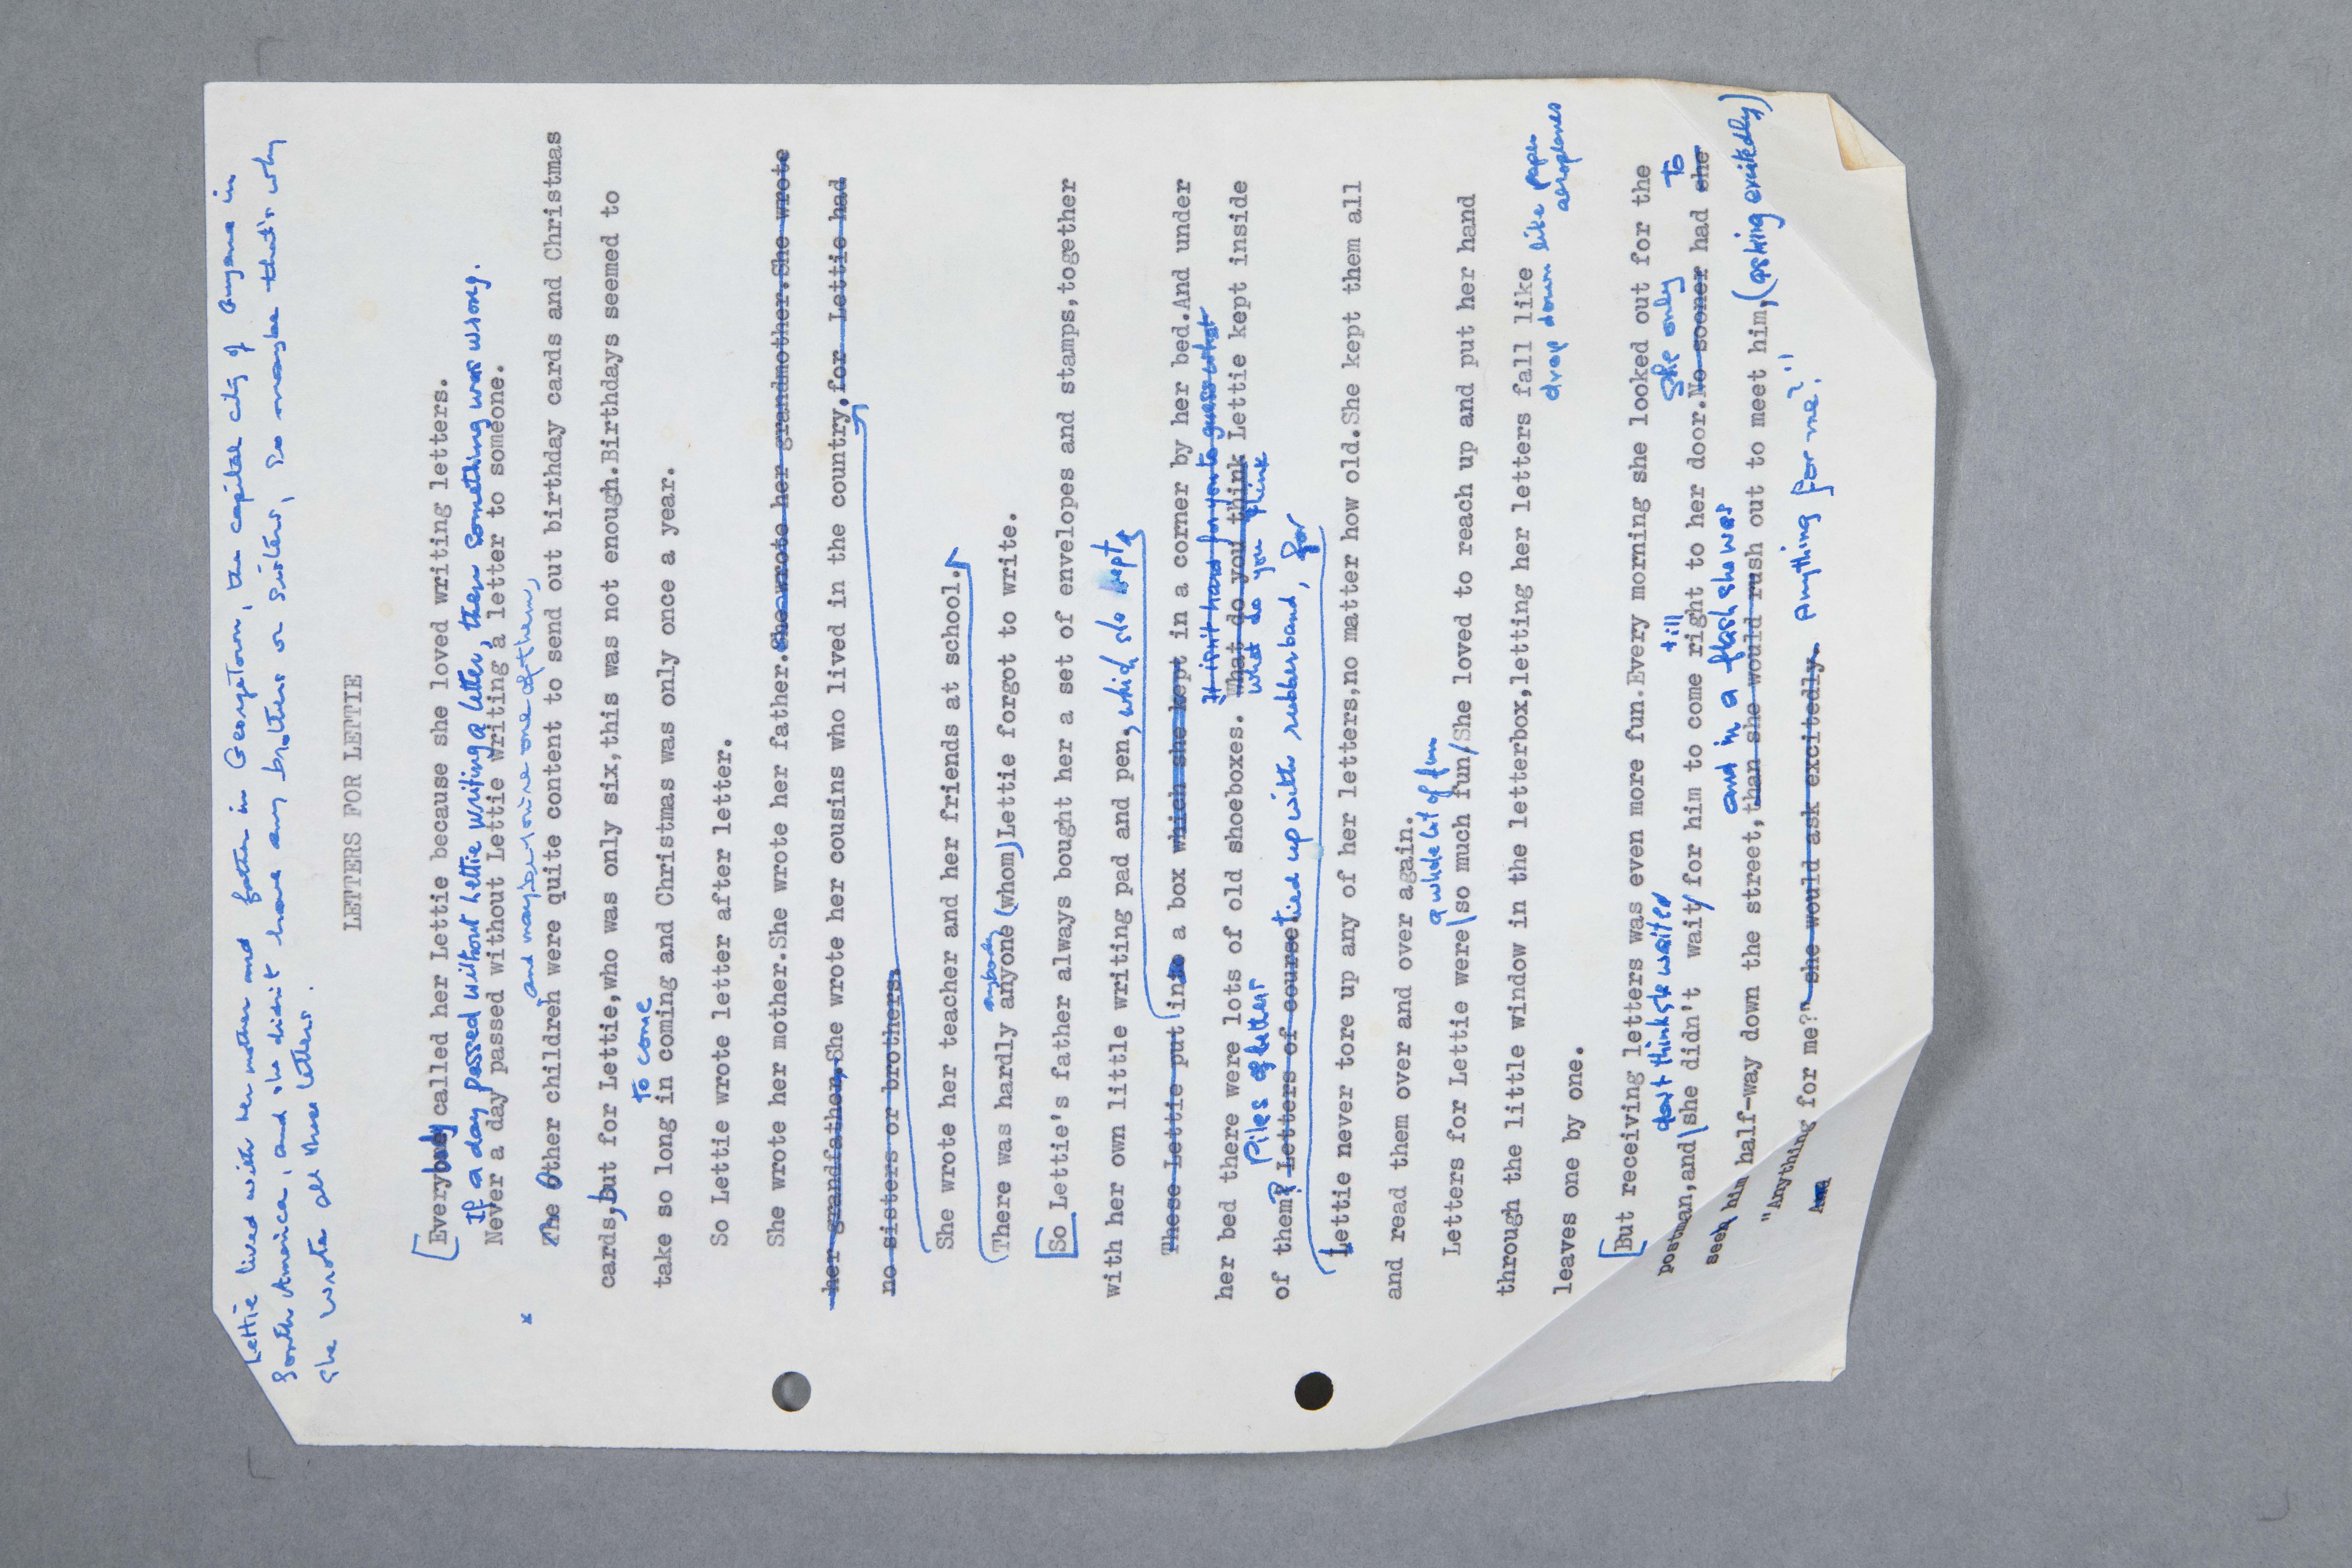 Lettie lived with her mother and father in Georgetown, the capital city of Guyana in
South America, and she didn't have any brothers or sisters, so maybe that's why
she wrote all these letters.
LETTERS FOR LETTIE
Everybody called her Lettie because she loved writing letters.
If a day passed without Lettie writing a letter, then something was wrong.
Never a day passed without Lettie writing a letter to someone.
and maybe one of them,
The Other children were quite content to send out birthday cards and Christmas
cards, but for Lettie,who was only six,this was not enough.Birthdays seemed to
to come
take so long in coming and Christmas was only once a year.
So Lettie wrote letter after letter.
She wrote her mother.She wrote her father.She wrote her grandmother.She wrote
her grandfather.She wrote her cousins who lived in the country,for Lettie had
no sisters or brothers.
She wrote her teacher and her friends at school.
anybody
There was hardly anyone (whom) Lettie forgot to write.
So Lettie's father always bought her a set of envelopes and stamps,together
with her own little writing pad and pen, which she kept
These Lettie put in a box which she kept in a corner by her bed.And under
It isn't hard for you to guess what
her bed there were lots of old shoeboxes. What do you think Lettie kept inside
what do you think
Piles of letters
of them? Letters of course tied up with rubberband, for
Lettie never tore up any of her letters,no matter how old.She kept them all
and read them over and over again.
a whole lot of fun
Letters for Lettie were so much fun/She loved to reach up and put her hand
through the little window in the letterbox,letting her letters fall like
drop down like paper aeroplanes
leaves one by one.
But receiving letters was even more fun.Every morning she looked out for the
don't think she waited till She only to
postman,and she didn't wait for him to come right to her door.No sooner had she
and in a flash she was
seen him half-way down the street,than she would rush out to meet him, (asking excitedly)
"Anything for me?" she would ask excitedly. Anything for me?"
And